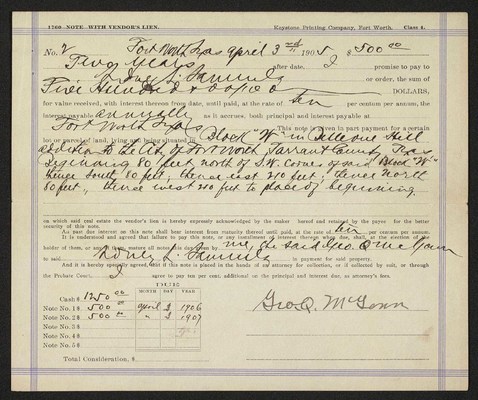 1769 NOTE WITH VENDOR'S LIEN. Keystone Printing Company, Fort Worth. Class 4.
No. 2 Fort Worth Texas April 3rd 1905 $500 00
Two years after date, I promise to pay to
L. Samuels or order, the sum of
Five Hundred & 00/100 DOLLARS,
for value received, with interest thereon from date, until paid, at the rate of ten per centum per annum, the
interest payable annually as it accrues, both principal and interest payable at
Fort Worth Texas This note is given in part payment for a certain
lot or parcel of land, lying and being situated in Block "W" in Hill
addition to the City of Fort Worth, Tarrant County, Texas
Beginning 80 feet north of S.W. Corner of said Block "W"
thence South 80 feet; thence east 210 feet; thence north
80 feet, thence west 210 feet to place of beginning.
on which said real estate the vendor's lien is hereby expressly acknowledged by the maker hereof and retained by the payee for the better
security of this note.
An past due interest on this note shall bear interest from maturity thereof until paid, at the rate of ten per centum per annum.
It is understood and agreed that failure to pay this note, or any installment of interest thereon when due, shall, at the election of the
holder of them, or any of them, mature all notes this day given by me, the said Geo. Q. McGown
to said L. Samuels in payment for said property.
And it is hereby specially agreed, that if this note is placed in the hands of an attorney for collection, or if collected by suit, or through
the Probate Court, I agree to pay ten per cent. additional on the principal and interest due, as attorney's fees.
DUE
MONTH DAY YEAR
Cash $ 1250 00
Note No. 1 $ 500 00 April 3 1906
Note No. 2 $ 500 00 " 3 1907
Note No. 3 $
Note No. 4 $
Note No. 5 $
Total Consideration, $
Geo. Q. McGown